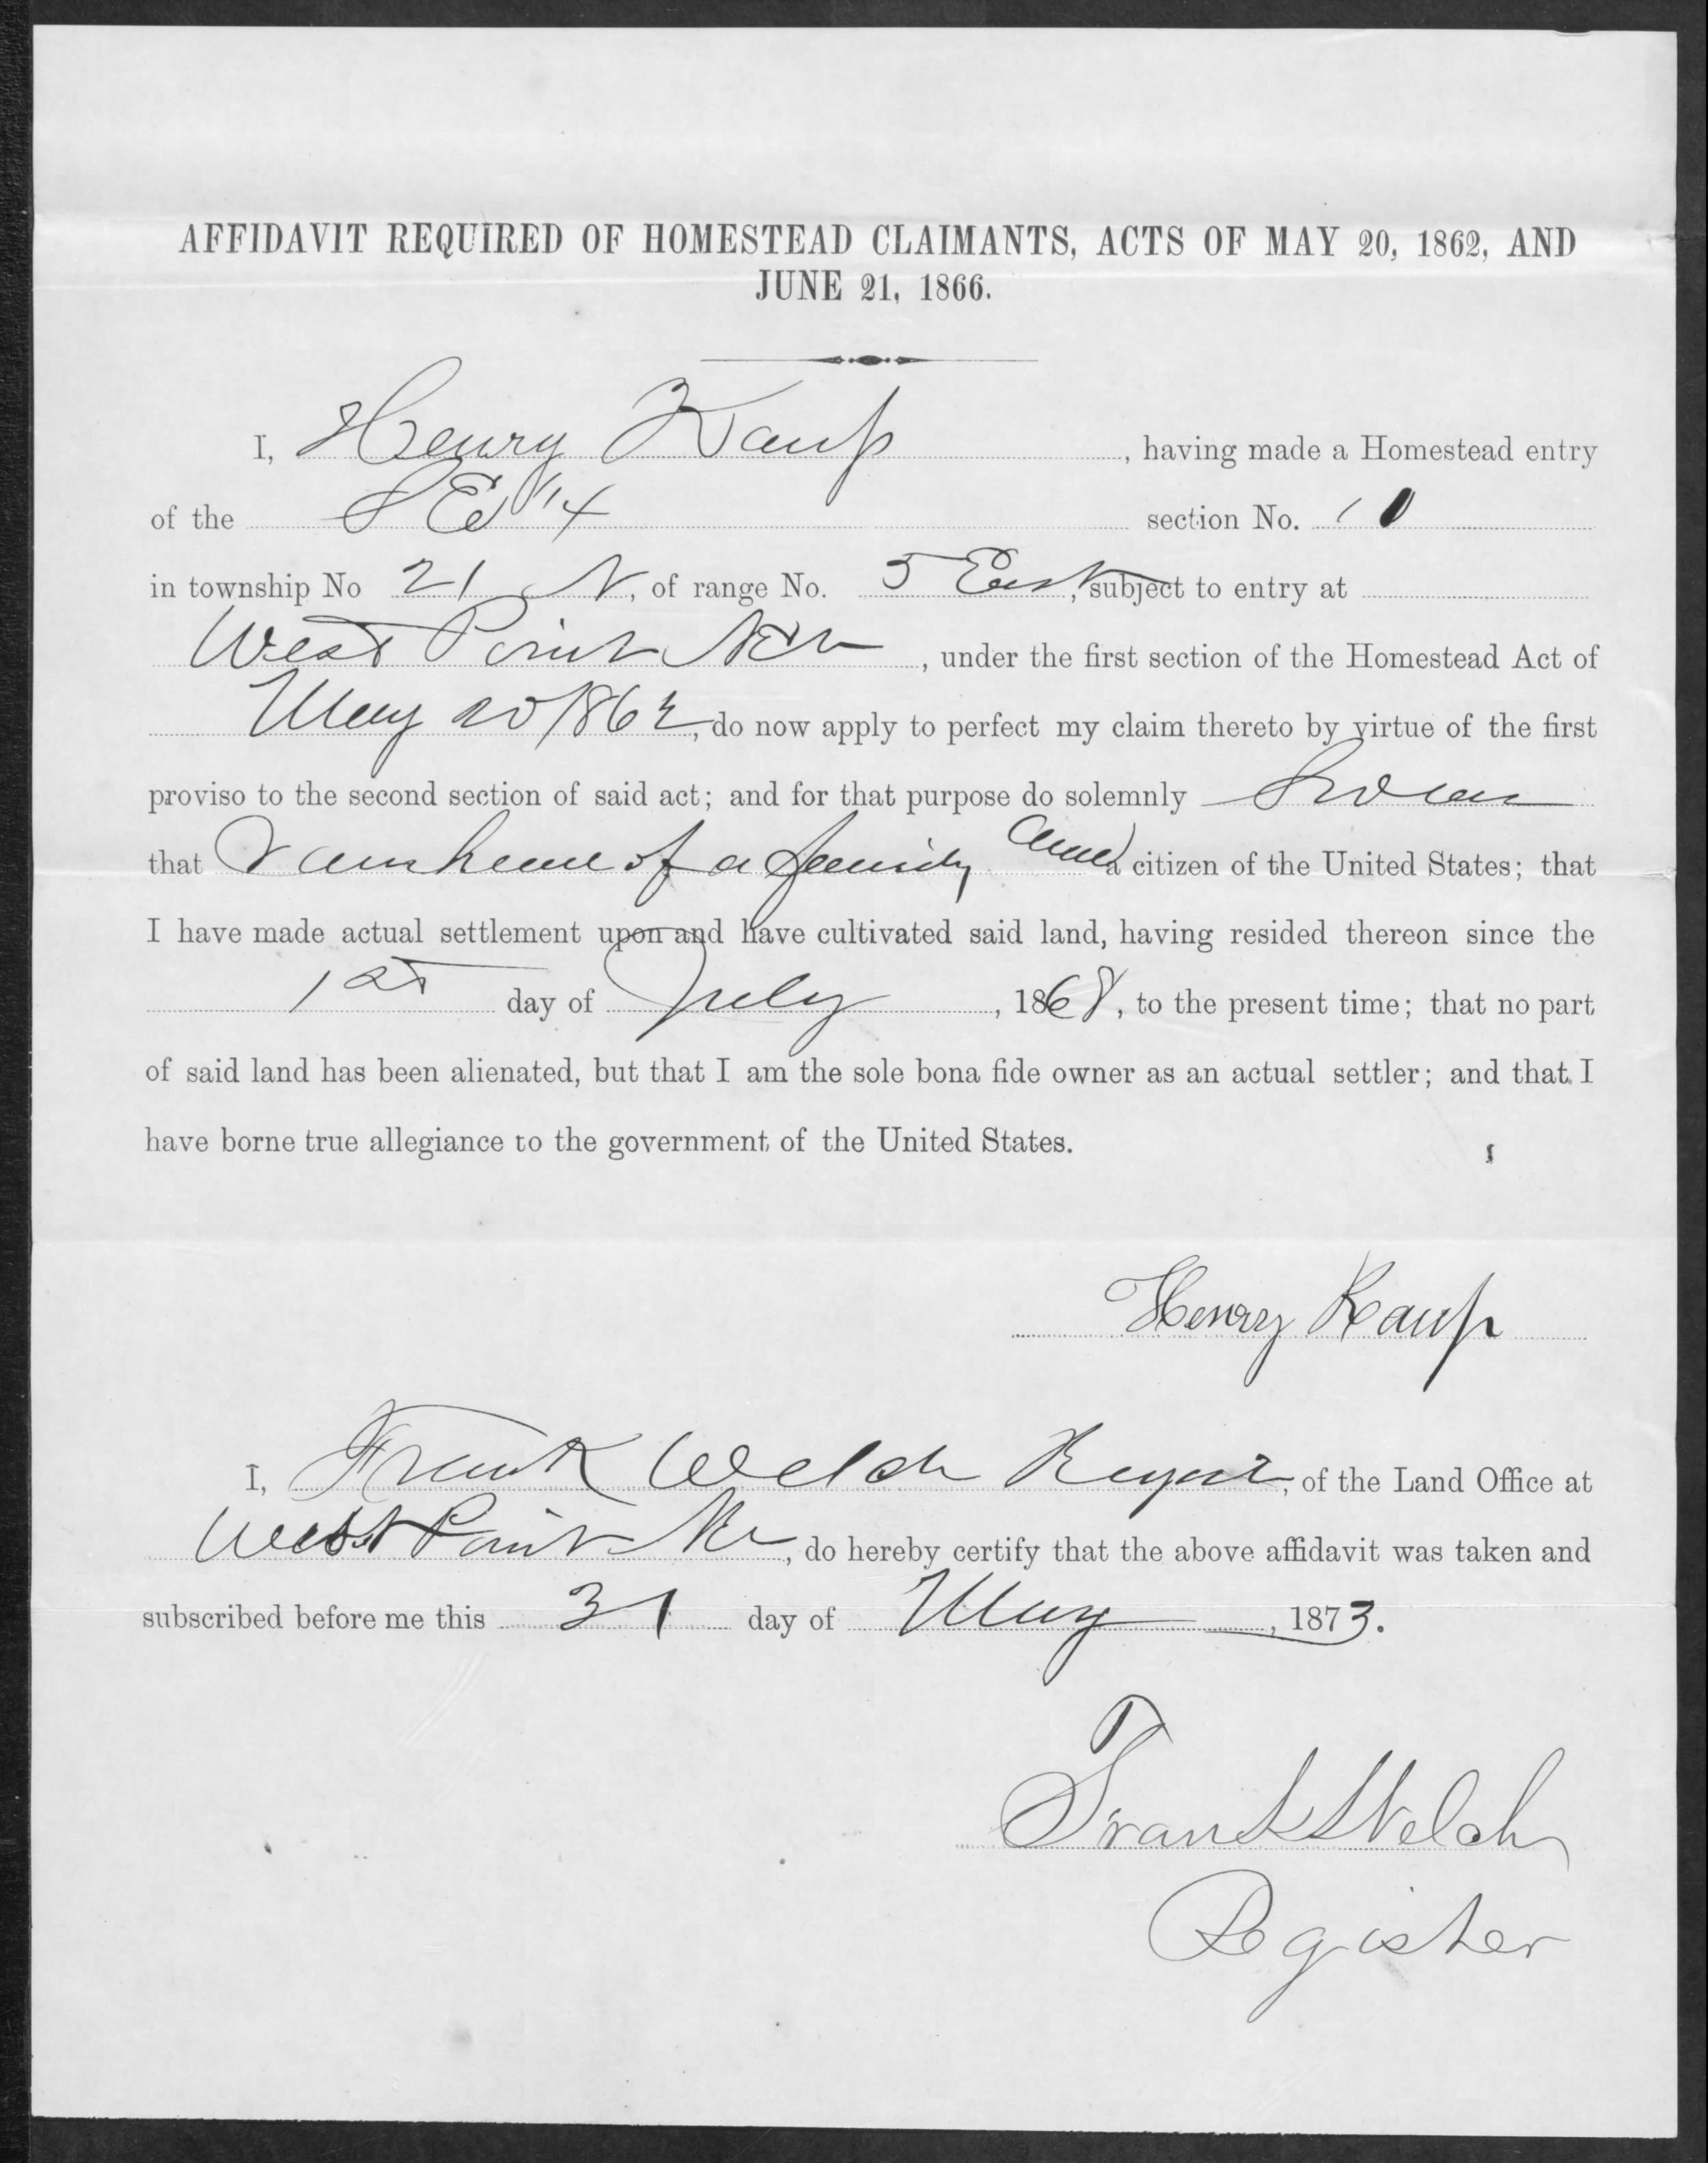 AFFIDAVIT REQUIRED OF HOMESTEAD CLAIMANTS, ACTS OF MAY 20, 1862, AND
JUNE 21, 1866.
I, Henry Kaup, having made a Homestead entry
of the S E 1/4 section No. 10
in township No 21 N, of range No. 5 East, subject to entry at
West Point Neb, under the first section of the Homestead Act of
May 20 1862, do now apply to perfect my claim thereto by virtue of the first
proviso to the second section of said act; and for that purpose do solemnly Swear
that I am head of a family and a citizen of the United States; that
I have made actual settlement upon and have cultivated said land, having resided thereon since the
1st day of July, 1868, to the present time; that no part
of said land has been alienated, but that I am the sole bona fide owner as an actual settler; and that I
have borne true allegiance to the government of the United States.
Henry Kaup
I, Frank Welch Register, of the Land Office at
West Point Ne, do hereby certify that the above affidavit was taken and
subscribed before me this 31 day of May, 1873.
Frank Welch
Register